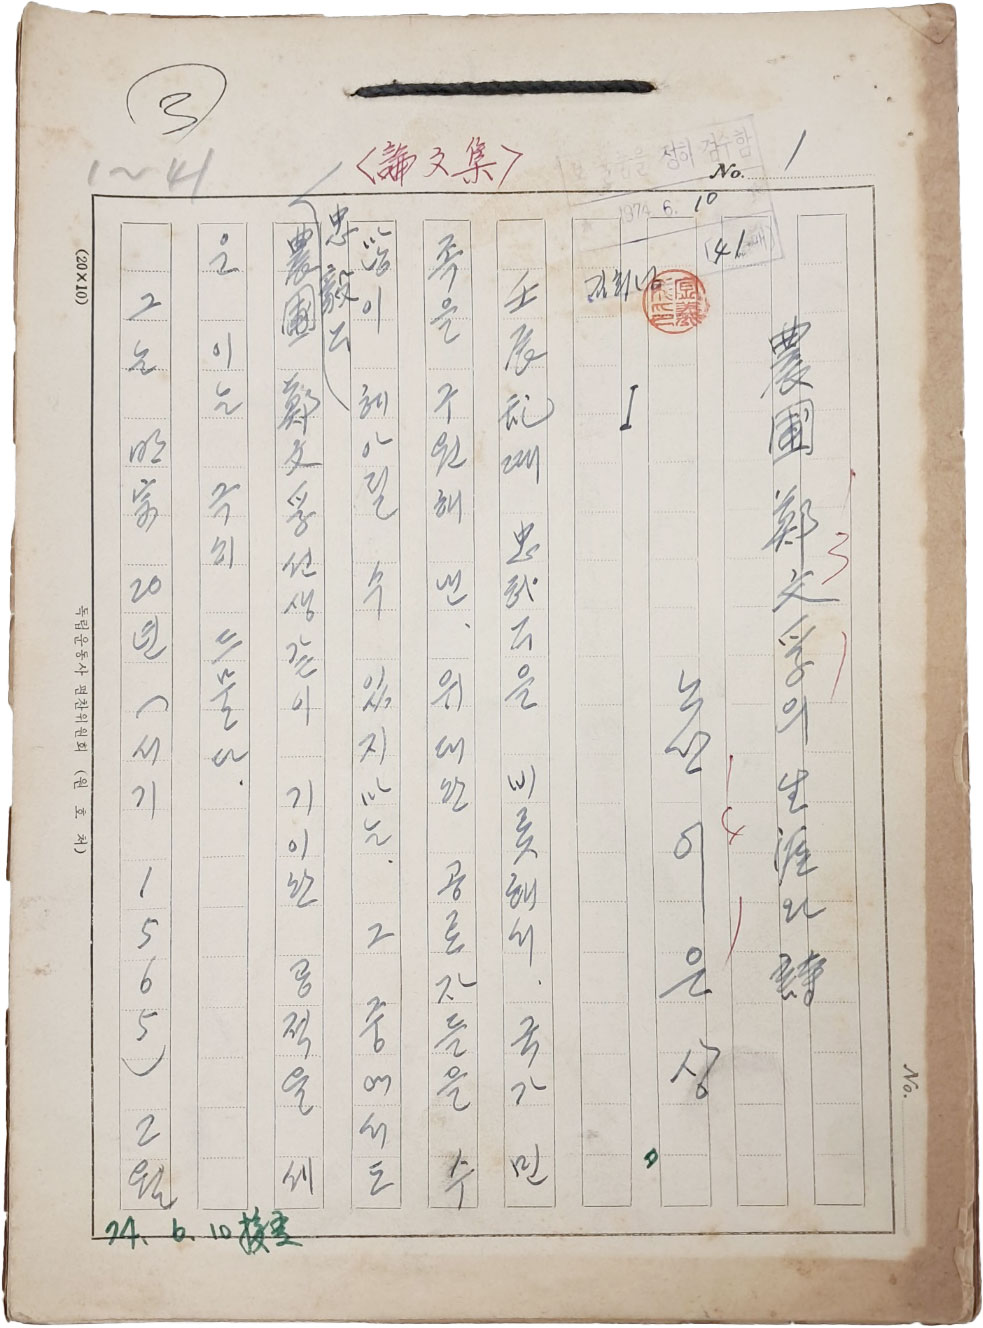 ③
1~41
<論文集>
No. 1
보 물품을 정히 검수함
1974. 6. 10
41 매
김희남
農圃 鄭文孚의 生涯와 詩
3
노산 이은상
4
I
壬辰乱때 忠武公을 비롯해서, 국가 민
족을 구원해 낸, 위대한 공로자들을 수
많이 헤아릴 수 있지마는, 그 중에서도
忠毅公
農圃 鄭文孚선생같이 기이한 공적을 세
운 이는 극히 드물다.
그는 明宗 20년 (서기 1565) 2월
(20×10)
독립운동사 편찬위원회 (원호처)
74. 6. 10 接受
No.